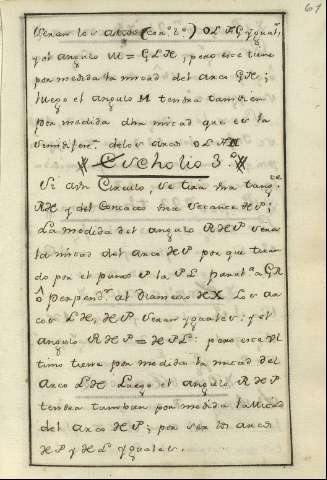 69
seran los arcos (con.º 2.º) OL AG yguals,
y el angulo M = GLH; pero este tiene
por medida la mitad del arco GH;
luego el angulo M tendra tambien
por medida dha mitad que es la
semidifer.ª delos arcos OL AH
Escholio 3.º
Si adho Circulo, se tira una tang.te
RH y del Contacto una secante HP;
La medida del angulo RHP sera
la mitad del arco HP por que tiran
do por el punto P la PL paral.ª a GR
ô perpend.r al Diametro HX Los ar
cos LH, HP, seran yguales; y el
angulo RHP = HPL: pero este Ul
timo tiene por medida la mitad del
Arco LH Luego el angulo RHP
tendra tambien por medida la mitad
del arco HP; por ser los arcos
HP y HL yguales.